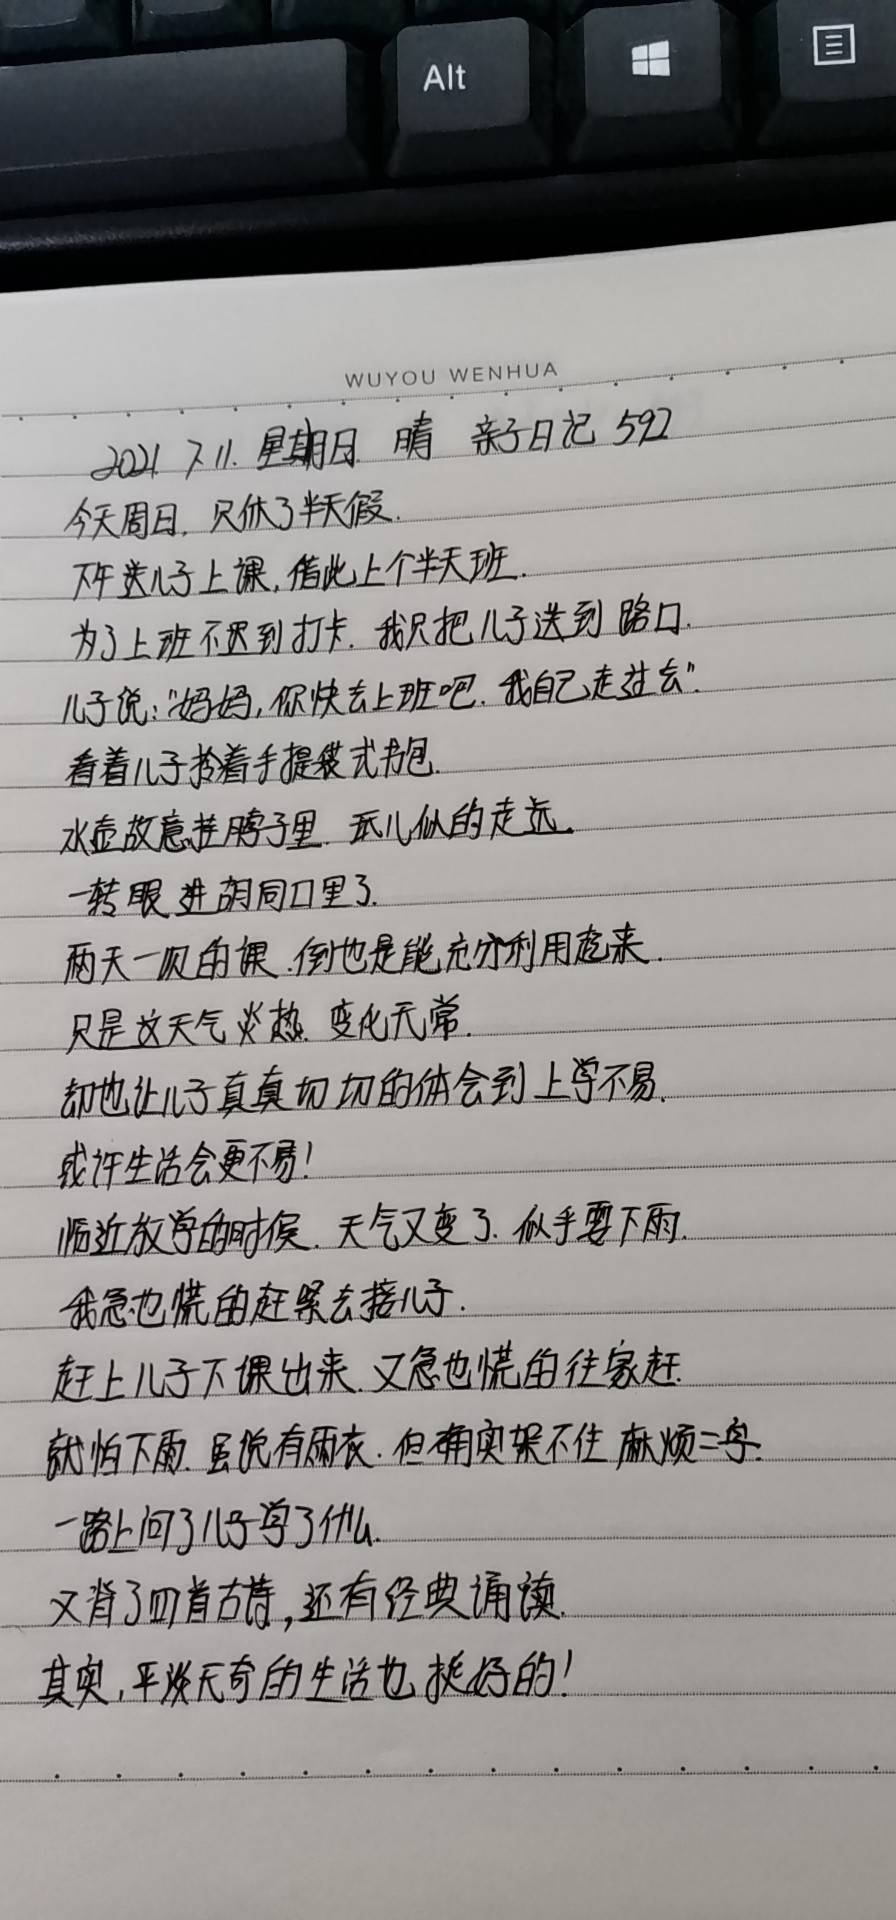 Alt
WUYOU WENHUA
2021. 7.11. 星期日. 晴 亲子日记 592
今天周日. 只休了半天假.
下午送儿子上课, 借此上个半天班.
为了上班不迟到打卡. 我只把儿子送到路口.
儿子说:"妈妈, 你快去上班吧. 我自己走过去".
看着儿子拎着手提袋式书包.
水壶故意挂脖子里. 玩儿似的走远.
一转眼进胡同口里了.
两天一次的课. 倒也是能充分利用起来.
只是这天气炎热. 变化无常.
却也让儿子真真切切的体会到上学不易.
或许生活会更不易!
临近放学的时候. 天气又变了. 似乎要下雨.
我急也慌的赶紧去接儿子.
赶上儿子下课出来. 又急也慌的往家赶.
就怕下雨. 虽说有雨衣. 但确实架不住麻烦二字.
一路上问了儿子学了什么.
又背了四首古诗, 还有经典诵读.
其实, 平淡无奇的生活也挺好的!